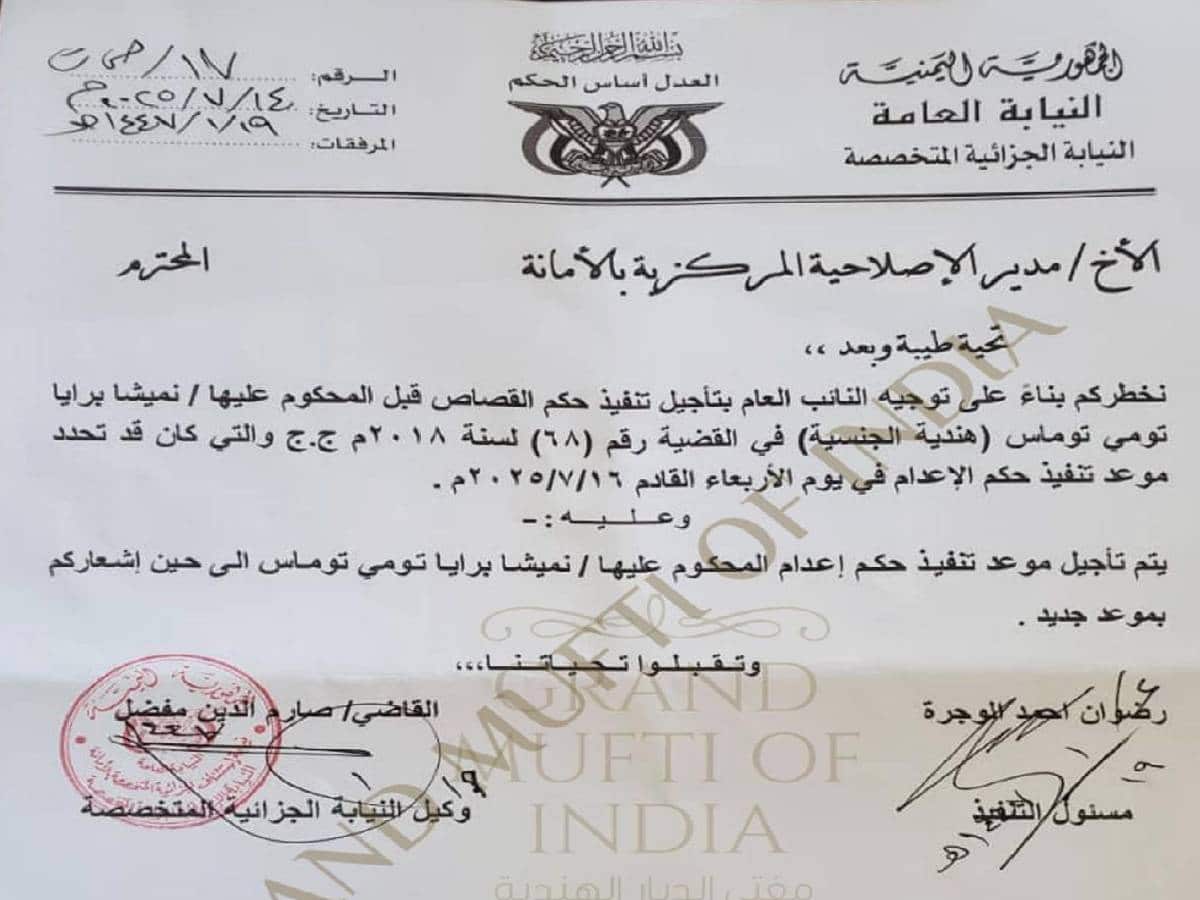 بسم الله الرحمن الرحيم
الجمهورية اليمنية
العدل أساس الحكم
النيابة العامة
النيابة الجزائية المتخصصة
الـرقم: ١٧/ص ت
التاريخ: ٢٠٢٥/٧/١٤م
١٤٤٧/١/١٩هـ
المرفقات:
الأخ/ مدير الإصلاحية المركزية بالأمانة المحترم
تحية طيبة وبعد ،،
نخطركم بناءً على توجيه النائب العام بتأجيل تنفيذ حكم القصاص قبل المحكوم عليها / نميشا برايا
تومي توماس (هندية الجنسية) في القضية رقم (٦٨) لسنة ٢٠١٨م ج.ج والتي كان قد تحدد
موعد تنفيذ حكم الإعدام في يوم الأربعاء القادم ٢٠٢٥/٧/١٦م .
وعـلـيـه :-
يتم تأجيل موعد تنفيذ حكم إعدام المحكوم عليها / نميشا برايا تومي توماس الى حين إشعاركم
بموعد جديد .
وتـقـبـلـوا تـحـيـاتـنـا،،،
رضوان احمد الوجرة
مسئول التنفيذ
القاضي/ صارم الدين مفضل
وكيل النيابة الجزائية المتخصصة
GRAND MUFTI OF INDIA
GRAND
MUFTI OF
INDIA
مفتي الديار الهندية